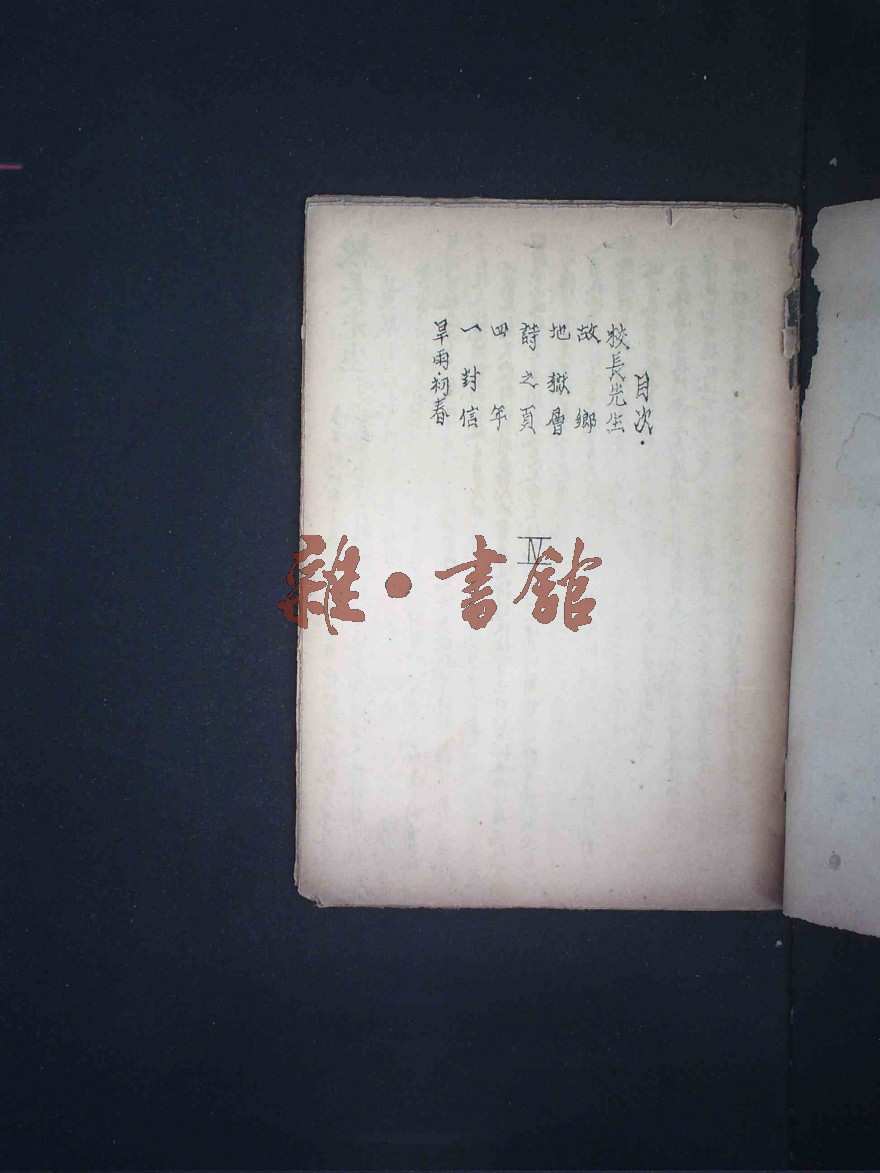 目次
校長先生
故鄉
地獄層
詩之頁
四年
一封信
旱雨·初春
IV
雜·書館